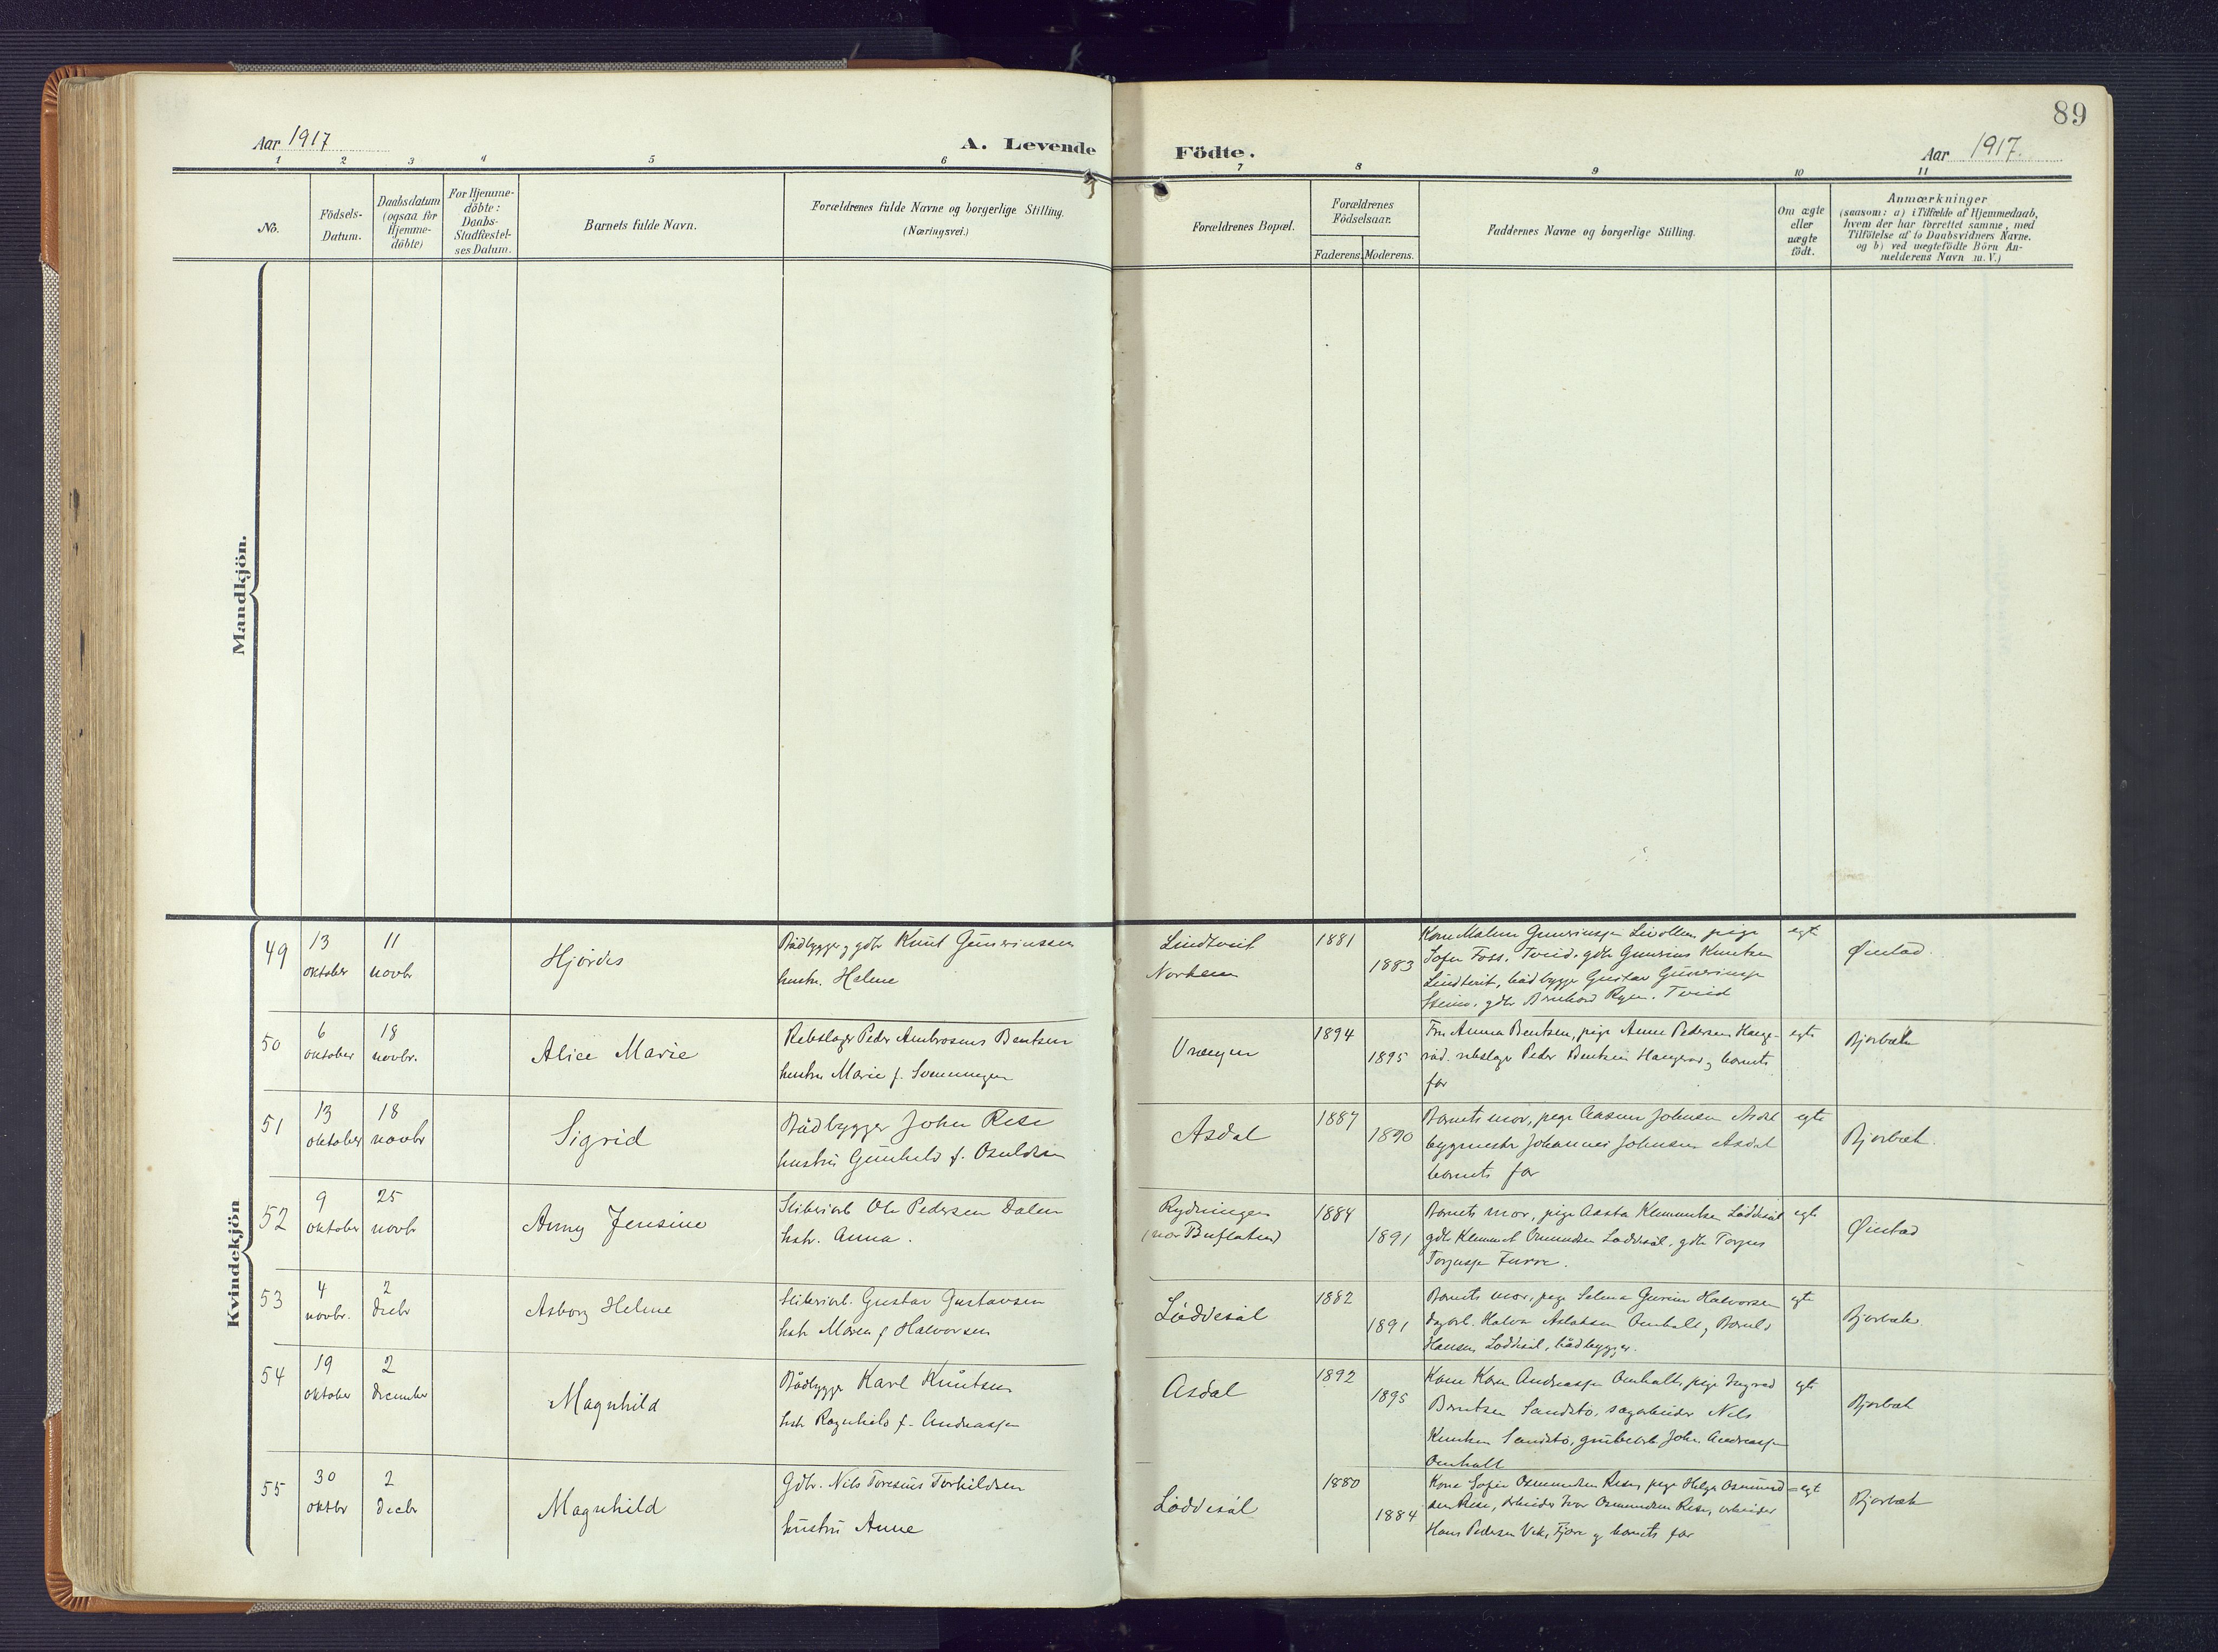 89
Aar 1917
A. Levende
Födte.
Aar 1917.
1 2 3 4 5 6 7 8 9 10 11
No.
Födsels-
Datum.
Daabsdatum
(ogsaa for
Hjemme-
döbte)
For Hjemme-
döbte:
Daabs-
Stadfæstel-
ses Datum.
Barnets fulde Navn.
Forældrenes fulde Navne og borgerlige Stilling.
(Næringsvei.)
Forældrenes Bopæl.
Forældrenes
Födselsaar.
Faderens. Moderens.
Faddernes Navne og borgerlige Stilling.
Om ægte
eller
uægte
födt.
Anmærkninger
(saasom: a) i Tilfælde af Hjemmedaab,
hvem der har forrettet samme, med
Tilföielse af to Daabsvidners Navne,
og b) ved uægtefödte Börn An-
melderens Navn m. V.)
Mandkjön.
Kvindekjön
49
13
oktober
11
novbr
Hjördis
Bådbygger og gdbr Knut Gunerinssen
hustr. Helene
Lindtveit
Norheim
1881
1883
Sofie Foss. Tveid. gdbr Gunerius Knutsen
Lindtveit, bådbygger Gustav
egte
Øiestad.
50
6
oktober
18
novbr.
Alice Marie
Rebslager Peder Ambrosius Bentsen
hustru Marie f.
Vrengen
1894
1895
Fru Anna Bentsen, pige Anne Pedersen
rebslager Peder Bentsen og barnets
far
egte
Bjorbæk
51
13
oktober
18
novbr
Sigrid
Bådbygger John Rise
hustru Gunhild f. Osuldsen
Asdal
1887
1890
Barnets mor, pige Aasne Johnsen Asdal
bygmester Johannes Johnsen Asdal
barnets far
egte
Bjorbæk.
52
9
oktober
25
novbr
Anny Jensine
Sliberiarb Ole Pedersen Dalen
hstr. Anna.
Rydningen
(nor Buflaten)
1884
1891
Barnets mor, pige Aasta Klemmetsen Løddesøl
gdbr Klemmet Osmundsen Løddesøl, gdbr Torjus
Torjussen Furre.
egte
Øiestad
53
4
novbr.
2
decbr
Asborg Helene
Sliberiarb. Gustav Gustavsen
hstr Maren f Halvorsen
Löddesöl
1882
1891
Barnets mor, pige Selma Halvorsen
dagarb. Halvor Aslaksen Omholt,
Hansen Løddesøl, bådbygger.
egte
Bjorbæk.
54
19
oktober
2
december
Magnhild
Bådbygger Karl Knutsen
hstr Ragnhild f. Andreassen
Asdal
1892
1895
Kone Karen Andreassen Omholt, pige Ingrid
Berntsen Sandstø, sagarbeider Nils
Knutsen Sandstø, grubearb. John Andreassen
Omholt
egte
Bjorbæk
55
30
oktbr
2
decbr
Magnhild
Gdbr. Nils Toresius Terkildsen
hustru Anne
Löddesöl
1880
1884
Kone Sofie Osmundsen Rise, pige Helga Osmund=
sen Rise, arbeider Ivar Osmundsen Rise, arbeider
Hans Pedersen Vik, Fjære og barnets far
egt
Bjorbæk